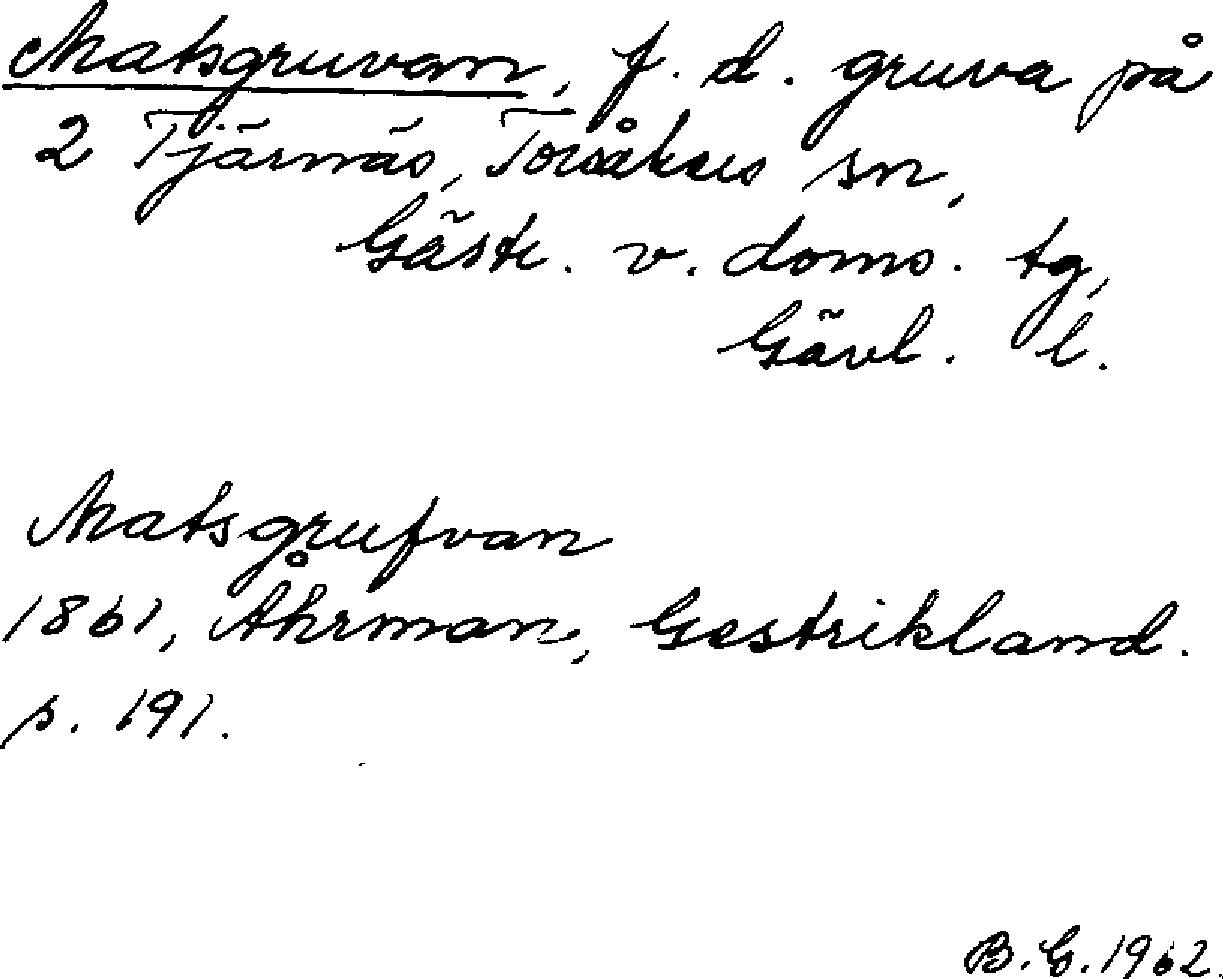 Matsgruvan, f. d. gruva på
2 Tjärnäs, Torsåkers sn,
Gästr. v. doms. tg,
Gävl. l.
Matsgrufvan
1861, Åhrman, Gestrikland.
s. 191.
B. G. 1962.